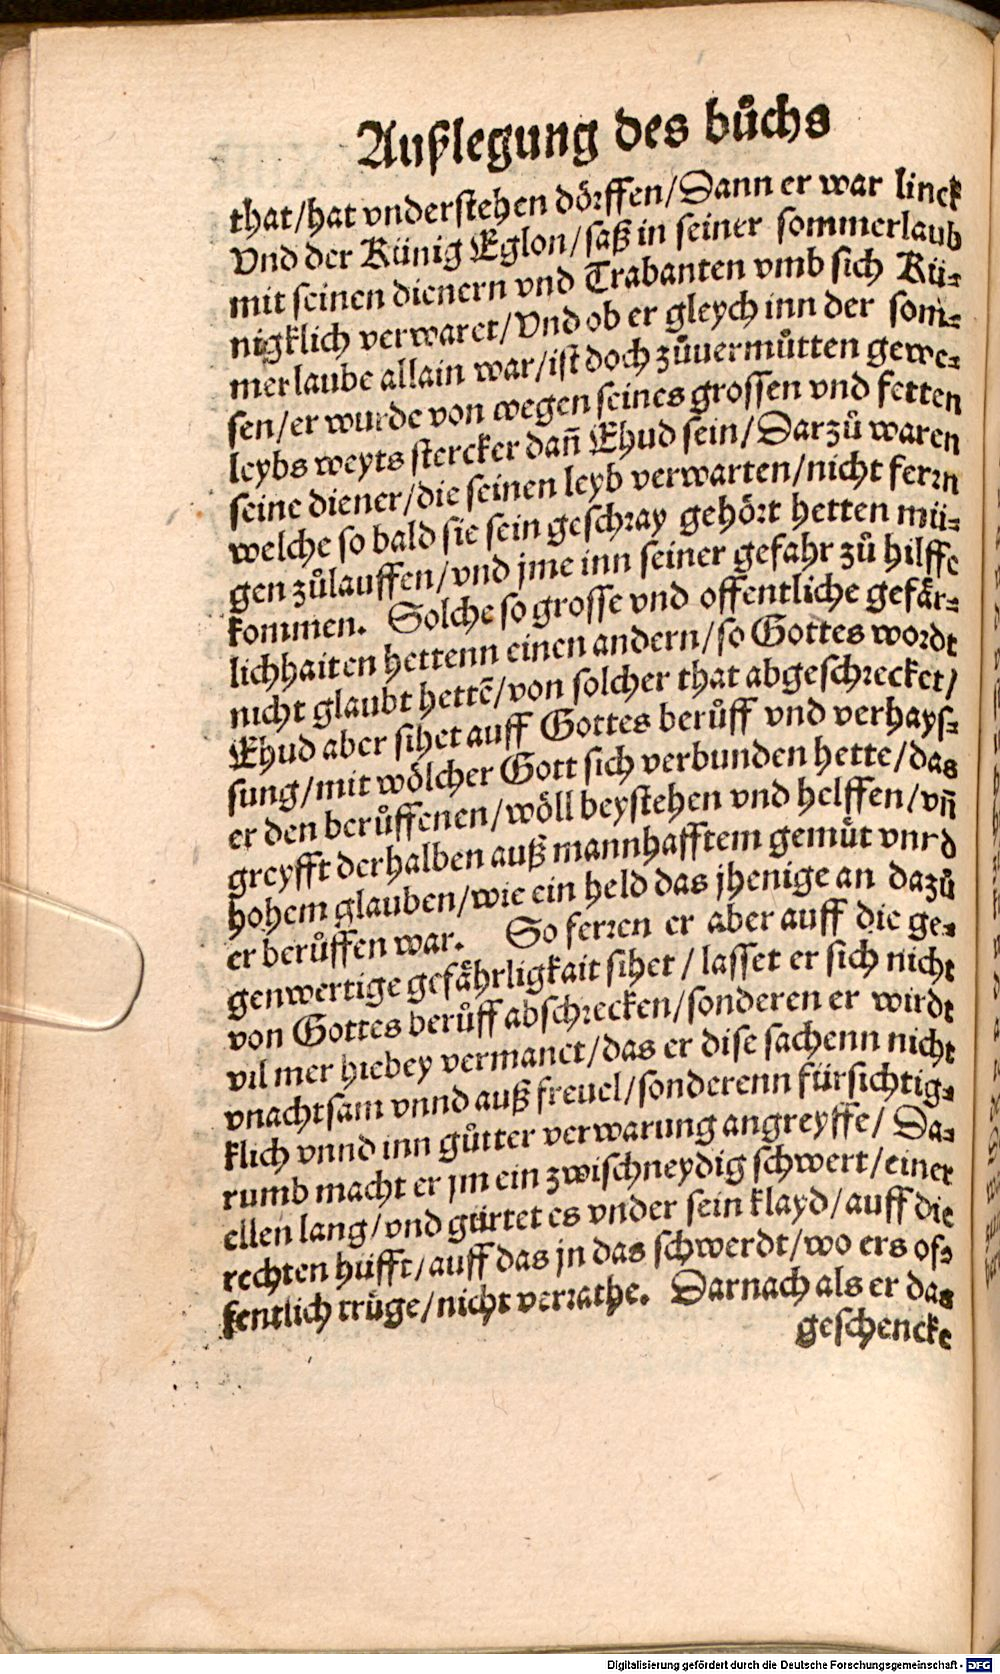 Außlegung des bůchs
that/hat vnderstehen dörffen/Dann er war linck
Vnd der Künig Eglon/saß in seiner sommerlaub
mit seinen dienern vnd Trabanten vmb sich Kü-
nigklich verwaret/Vnd ob er gleych inn der som-
merlaube allain war/ist doch zůuermůtten gewe-
sen/er wurde von wegen seines grossen vnd fetten
leybs weyts stercker dañ Ehud sein/Darzů waren
seine diener/die seinen leyb verwarten/nicht ferrn
welche so bald sie sein geschray gehört hetten mü-
gen zůlauffen/vnd jme inn seiner gefahr zů hilffe
kommen. Solche so grosse vnd offentliche gefär-
lichhaiten hettenn einen andern/so Gottes wordt
nicht glaubt hettē/von solcher that abgeschrecket/
Ehud aber sihet auff Gottes berůff vnd verhays-
sung/mit wölcher Gott sich verbunden hette/das
er den berůffenen/wöll beystehen vnd helffen/vñ
greyfft derhalben auß mannhafftem gemůt vnrd
hohem glauben/wie ein held das jhenige an dazů
er berůffen war. So ferren er aber auff die ge-
genwertige gefährligkait sihet / lasset er sich nicht
von Gottes berůff abschrecken/sonderen er wirdt
vil mer hiebey vermanet/das er dise sachenn nicht
vnachtsam vnnd auß freuel/sonderenn fürsichtig-
klich vnnd inn gůtter verwarung angreyffe/ Da-
rumb macht er jm ein zwischneydig schwert/einer
ellen lang/vnd gürtet es vnder sein klayd/auff die
rechten hüfft/auff das jn das schwerdt/wo ers of-
fentlich trüge/nicht verrathe. Darnach als er das
geschencke
Digitalisierung gefördert durch die Deutsche Forschungsgemeinschaft - DFG